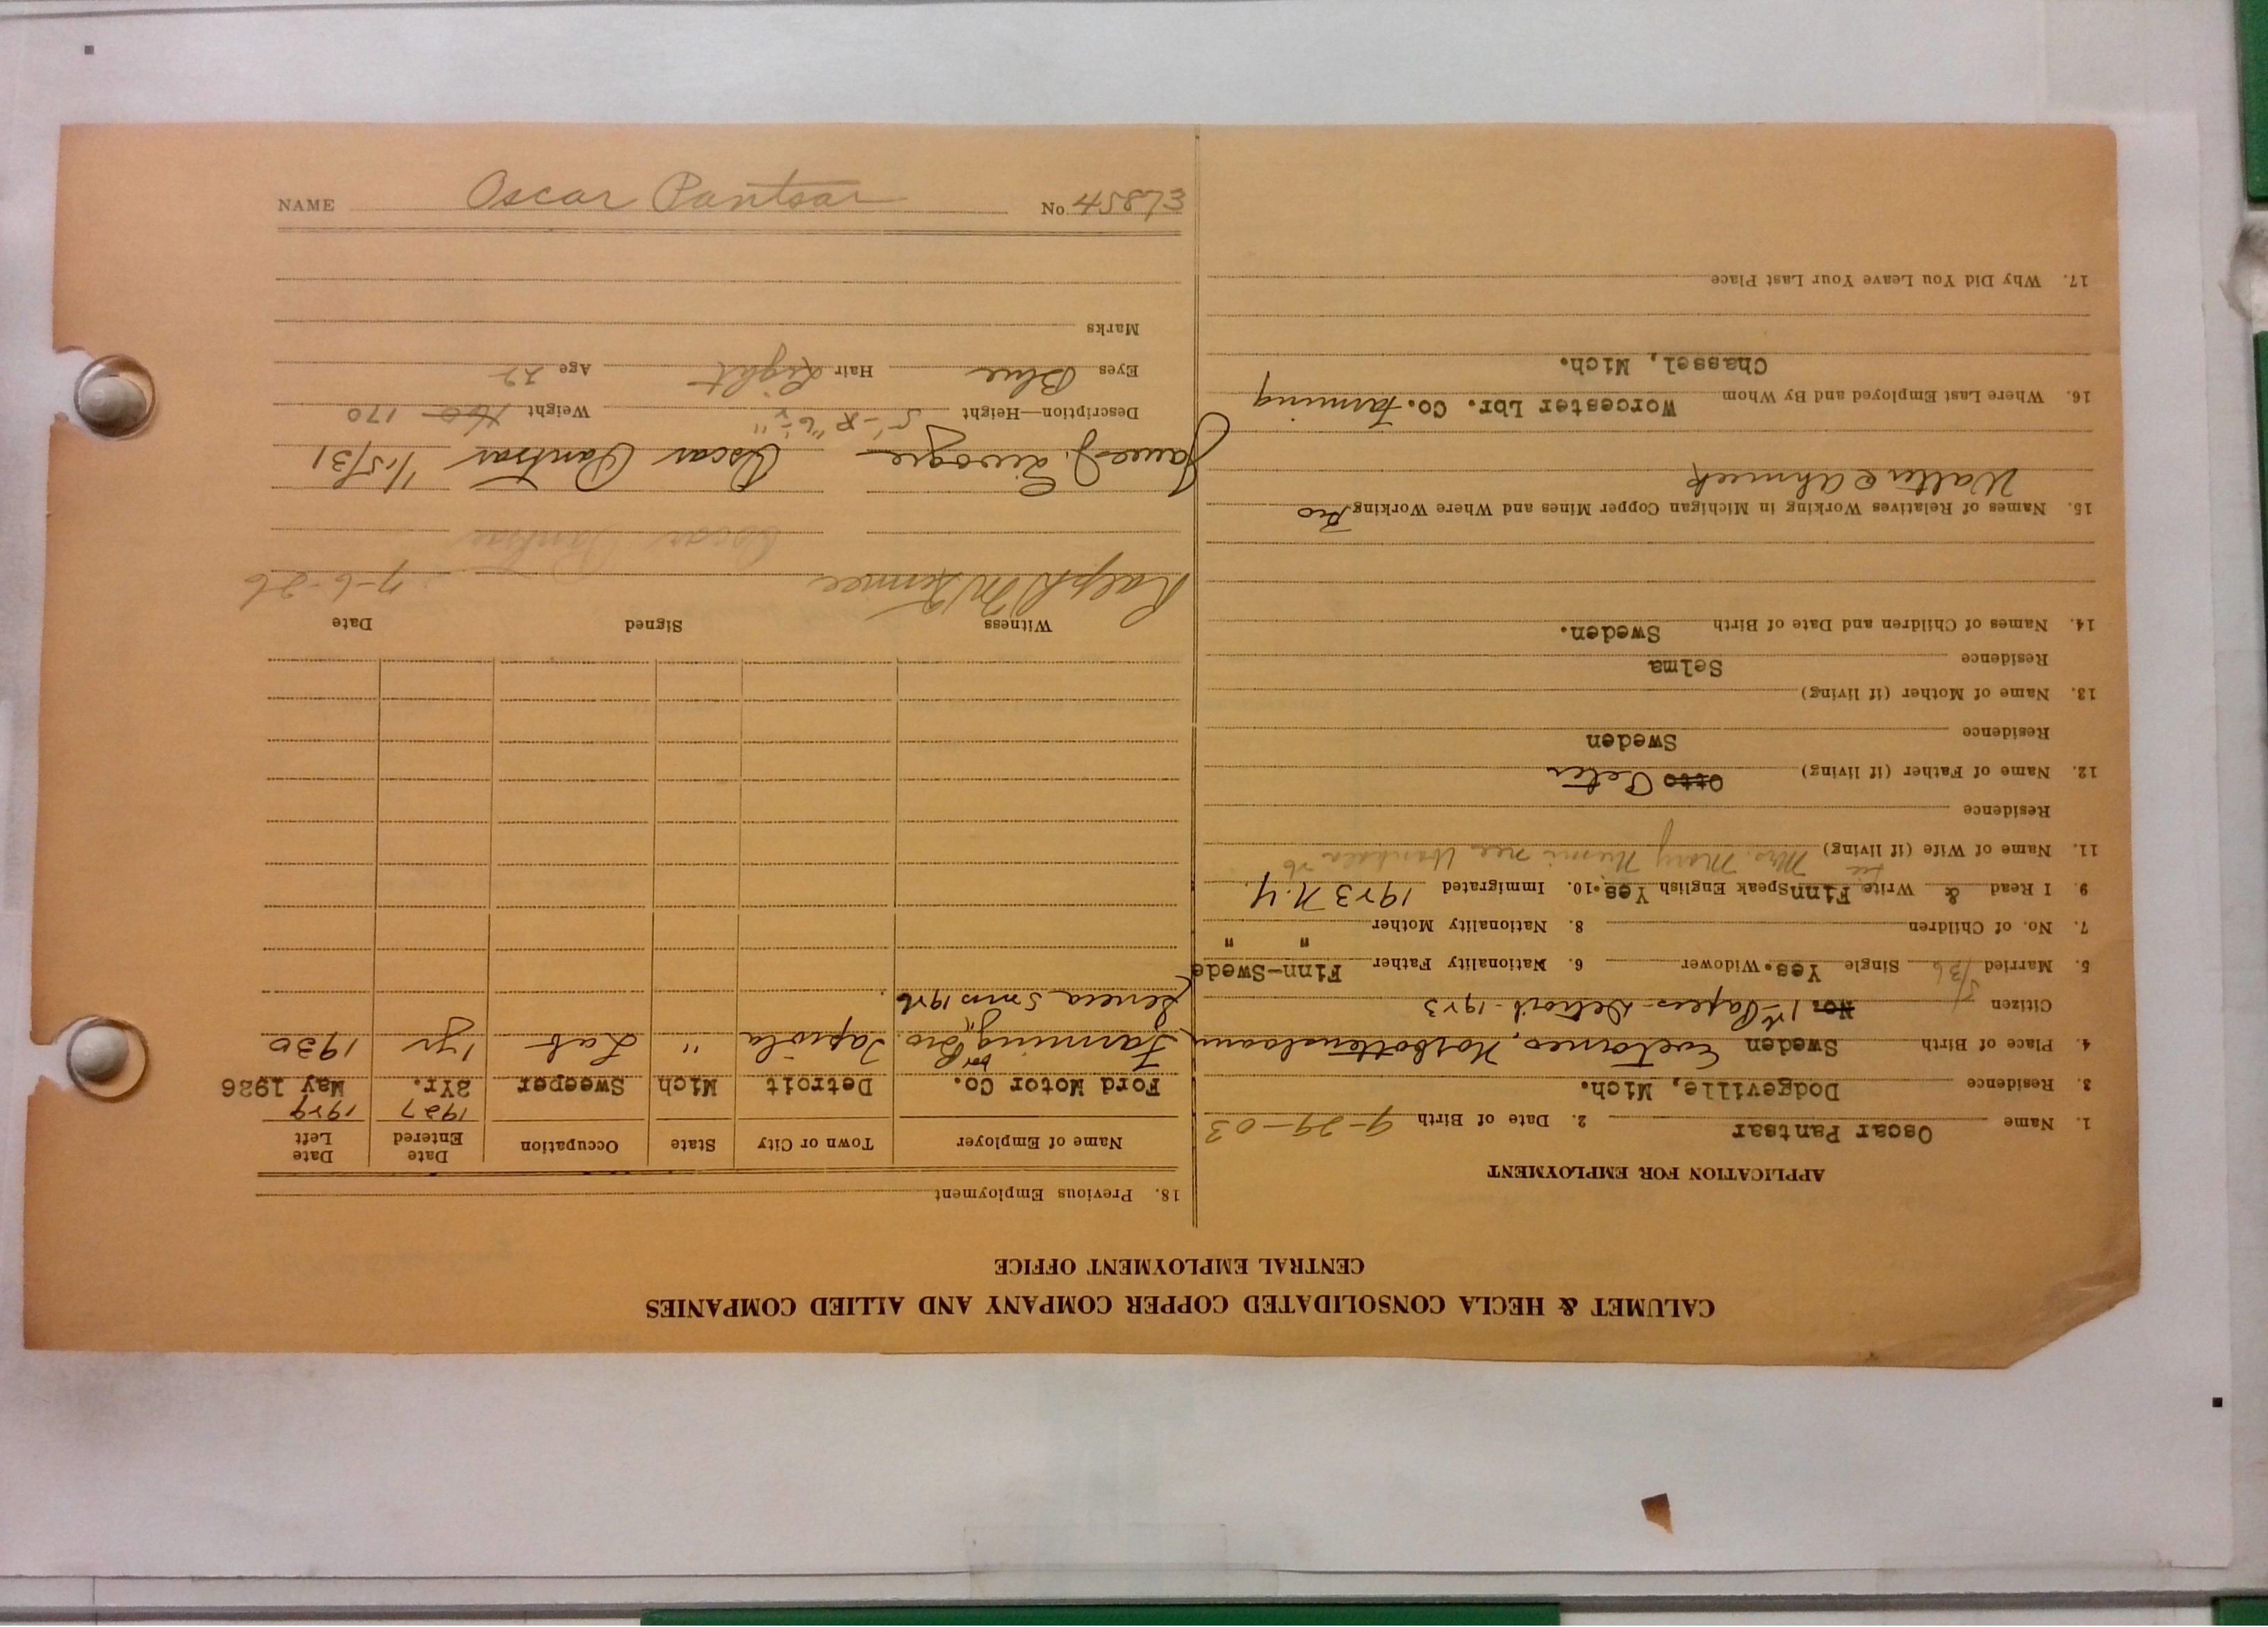 CALUMET & HECLA CONSOLIDATED COPPER COMPANY AND ALLIED COMPANIES
CENTRAL EMPLOYMENT OFFICE
APPLICATION FOR EMPLOYMENT
1. Name Oscar Pantsar 2. Date of Birth 9-29-03
3. Residence Dodgeville, Mich.
4. Place of Birth Sweden
Citizen No. 1st Papers - Detroit - 1923
5. Married 5/36 Single Yes. Widower 6. Nationality Father Finn-Swede
7. No. of Children 8. Nationality Mother " "
9. I Read & Write Finn Speak English Yes. 10. Immigrated 1923 N.Y.
11. Name of Wife (if living) Mrs. Mary Niemi nee
Residence
12. Name of Father (if living) Otto Peter
Residence Sweden
13. Name of Mother (if living)
Residence Selma
14. Names of Children and Date of Birth Sweden.
15. Names of Relatives Working in Michigan Copper Mines and Where Working Bro
Walter @ Ahmeek
16. Where Last Employed and By Whom Worcester Lbr. Co. Farming
Chassel, Mich.
17. Why Did You Leave Your Last Place
18. Previous Employment
Name of Employer Town or City State Occupation Date Entered Date Left
1927 1929
Ford Motor Co. Detroit Mich Sweeper 2Yr. May 1926
Farming Bro. Tapiola " Lab 1 yr 1930
Seneca 5 mos 1926
Witness Signed Date
Ralph McKermee 7-6-26
Oscar Pantsar
Oscar Pantsar 1/15/31
Description—Height 5'-8" 6½" Weight 160 170
Eyes Blue Hair Light Age 22
Marks
NAME Oscar Pantsar No. 45873